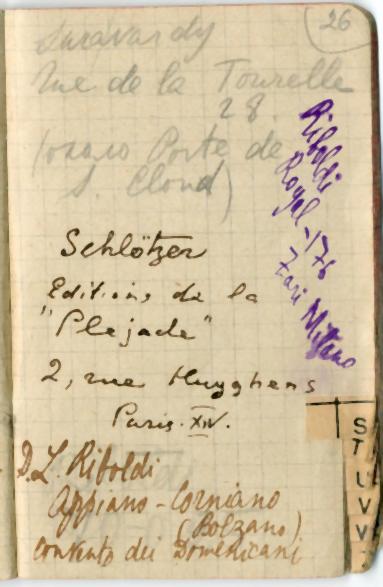 26
Suravardy
Rue de la Tourelle
28.
Porte de
S. Cloud)
Riboldi
176
Zari Milano
Schlötzer
Editions de la
"Plejade"
2, rue Huyghens
Paris. XIV.
D. L. Riboldi
Appiano - Corniano
(Bolzano)
Convento dei Domenicani
S
T
U
V